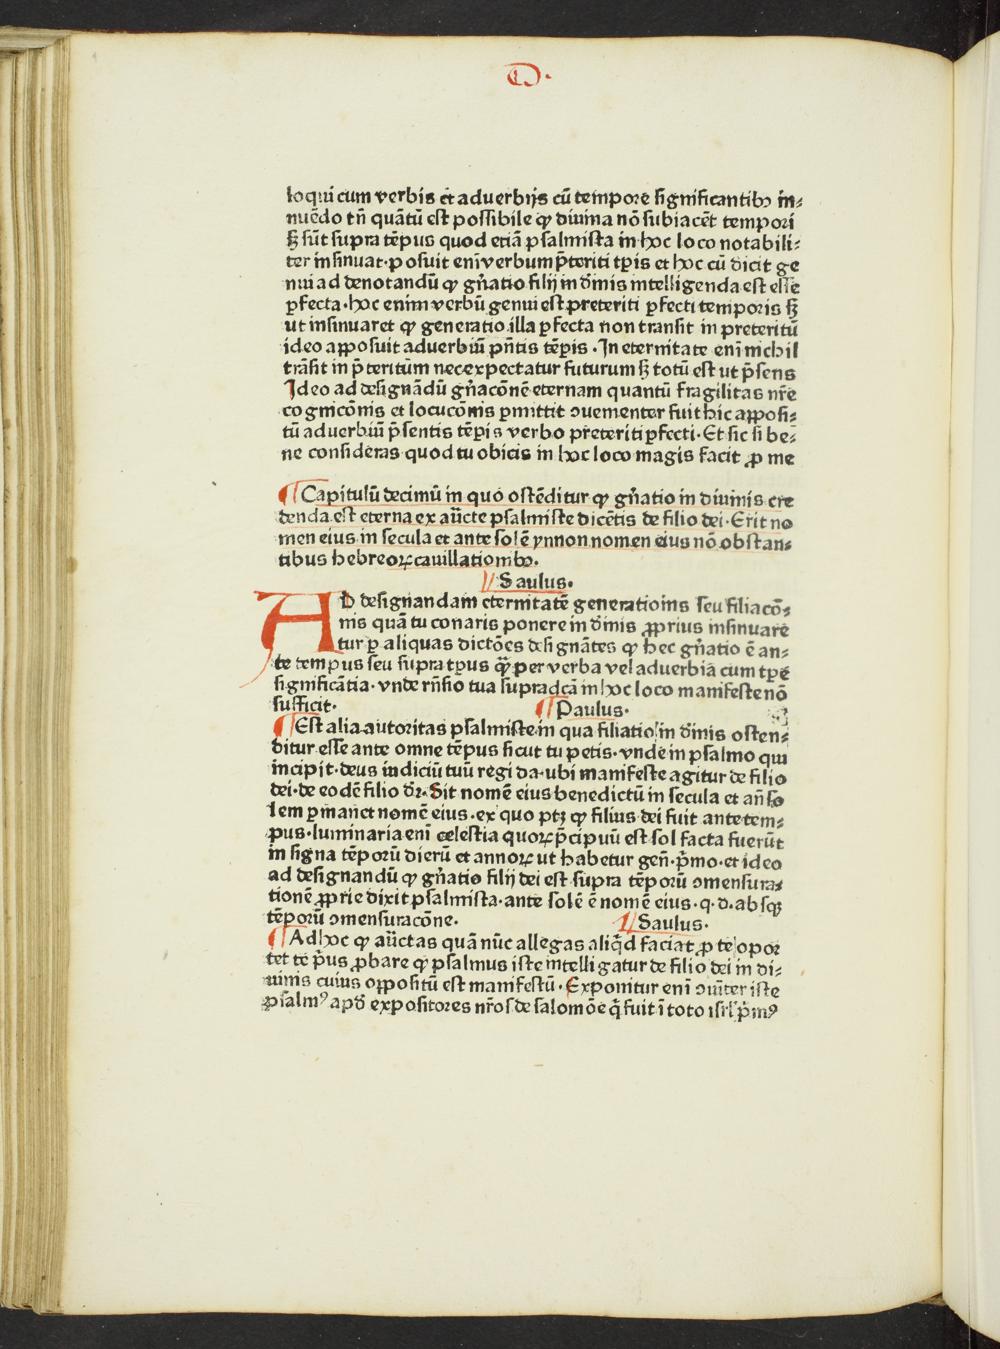 D.
loqui cum verbis et aduerbijs cū tempore significantibꝫ in⸗
nuēdo tn̄ quātū est possibile ꝙ diuina nō subiacēt tempori
sꝫ sūt supra tēpus quod etiā psalmista in hoc loco notabili⸗
ter insinuat·posuit eni̅ verbum p̄teriti tp̄is et hoc cū dicit ge
nui ad denotandū ꝙ gn̄atio filij in d̄inis intelligenda est esse
ꝑfecta·hoc enim verbū genui est preteriti ꝑfecti temporis sꝫ
ut insinuaret ꝙ generatio illa ꝑfecta non transit in preteritū
ideo apposuit aduerbiū pn̄tis tēꝑis·In eternitate eni̅ nichil
trāsit in p̄teritum nec expectatur futurum sꝫ totū est ut p̄sens
Ideo ad designādū gn̄acōnē eternam quantū fragilitas nr̄e
cognicōnis et locucōnis ꝑmittit ↄuementer fuit hic apposi⸗
tū aduerbiū p̄sentis tēꝑis verbo preteriti ꝑfecti·Et sic si be⸗
ne consideras quod tu obicis in hoc loco magis facit ꝓ me
¶Capitulū decimū in quo ostēditur ꝙ gn̄atio in diuinis cre
denda est eterna ex au̅cte psalmiste dicētis de filio dei·Erit no
men eius in secula et ante solē ynnon nomen eius nō obstan⸗
tibus hebreoꝝ cauillationibꝫ·
¶Saulus·
AD designandam eternitatē generationis seu filiacō⸗
nis quā tu conaris ponere in d̄inis ꝓprius insinuare
tur ꝑ aliquas dictōes designātes ꝙ hec gn̄atio ē an⸗
te tempus seu supra tp̄us qꝫ̄ per verba vel aduerbia cum tp̄e
significātia·vnde rn̄sio tua supradcā in hoc loco manifeste nō
sufficit· ¶Paulus·
¶Est alia autoritas psalmiste in qua filiatio in d̄inis osten⸗
ditur esse ante omne tēpus sicut tu petis·vnde in psalmo qui
incipit·deus iudiciū tuū regi da·ubi manifeste agitur de filio
dei·de eodē filio dr̄·Sit nomē eius benedictū in secula et an̄ so
lem ꝑmanet nomē eius·ex quo ptꝫ ꝙ filius dei fuit ante tem⸗
pus·luminaria eni̅ celestia quoꝝ p̄cipuū est sol facta fuerūt
in signa tēporū dierū et annoꝝ ut habetur gen̄·p̄mo·et ideo
ad designandū ꝙ gn̄atio filij dei est supra tēporū ↄmensura⸗
tionē ꝓprie dixit psalmista·ante solē ē nomē eius·q·d·absqꝫ
tēporū ↄmensuracōne· ¶Saulus·
¶Ad hoc ꝙ au̅ctas quā nūc allegas aliq̄d faciat ꝓ te opor
tet te p̄us ꝓbare ꝙ psalmus iste intelligatur de filio dei in di⸗
uinis cuius oppositū est manifestū·Exponitur eni̅ ↄu̅iter iste
psalmꝰ apd̄ expositores nr̄os de salomōe q̄ fuit ī toto isrl̄ p̄mꝰ